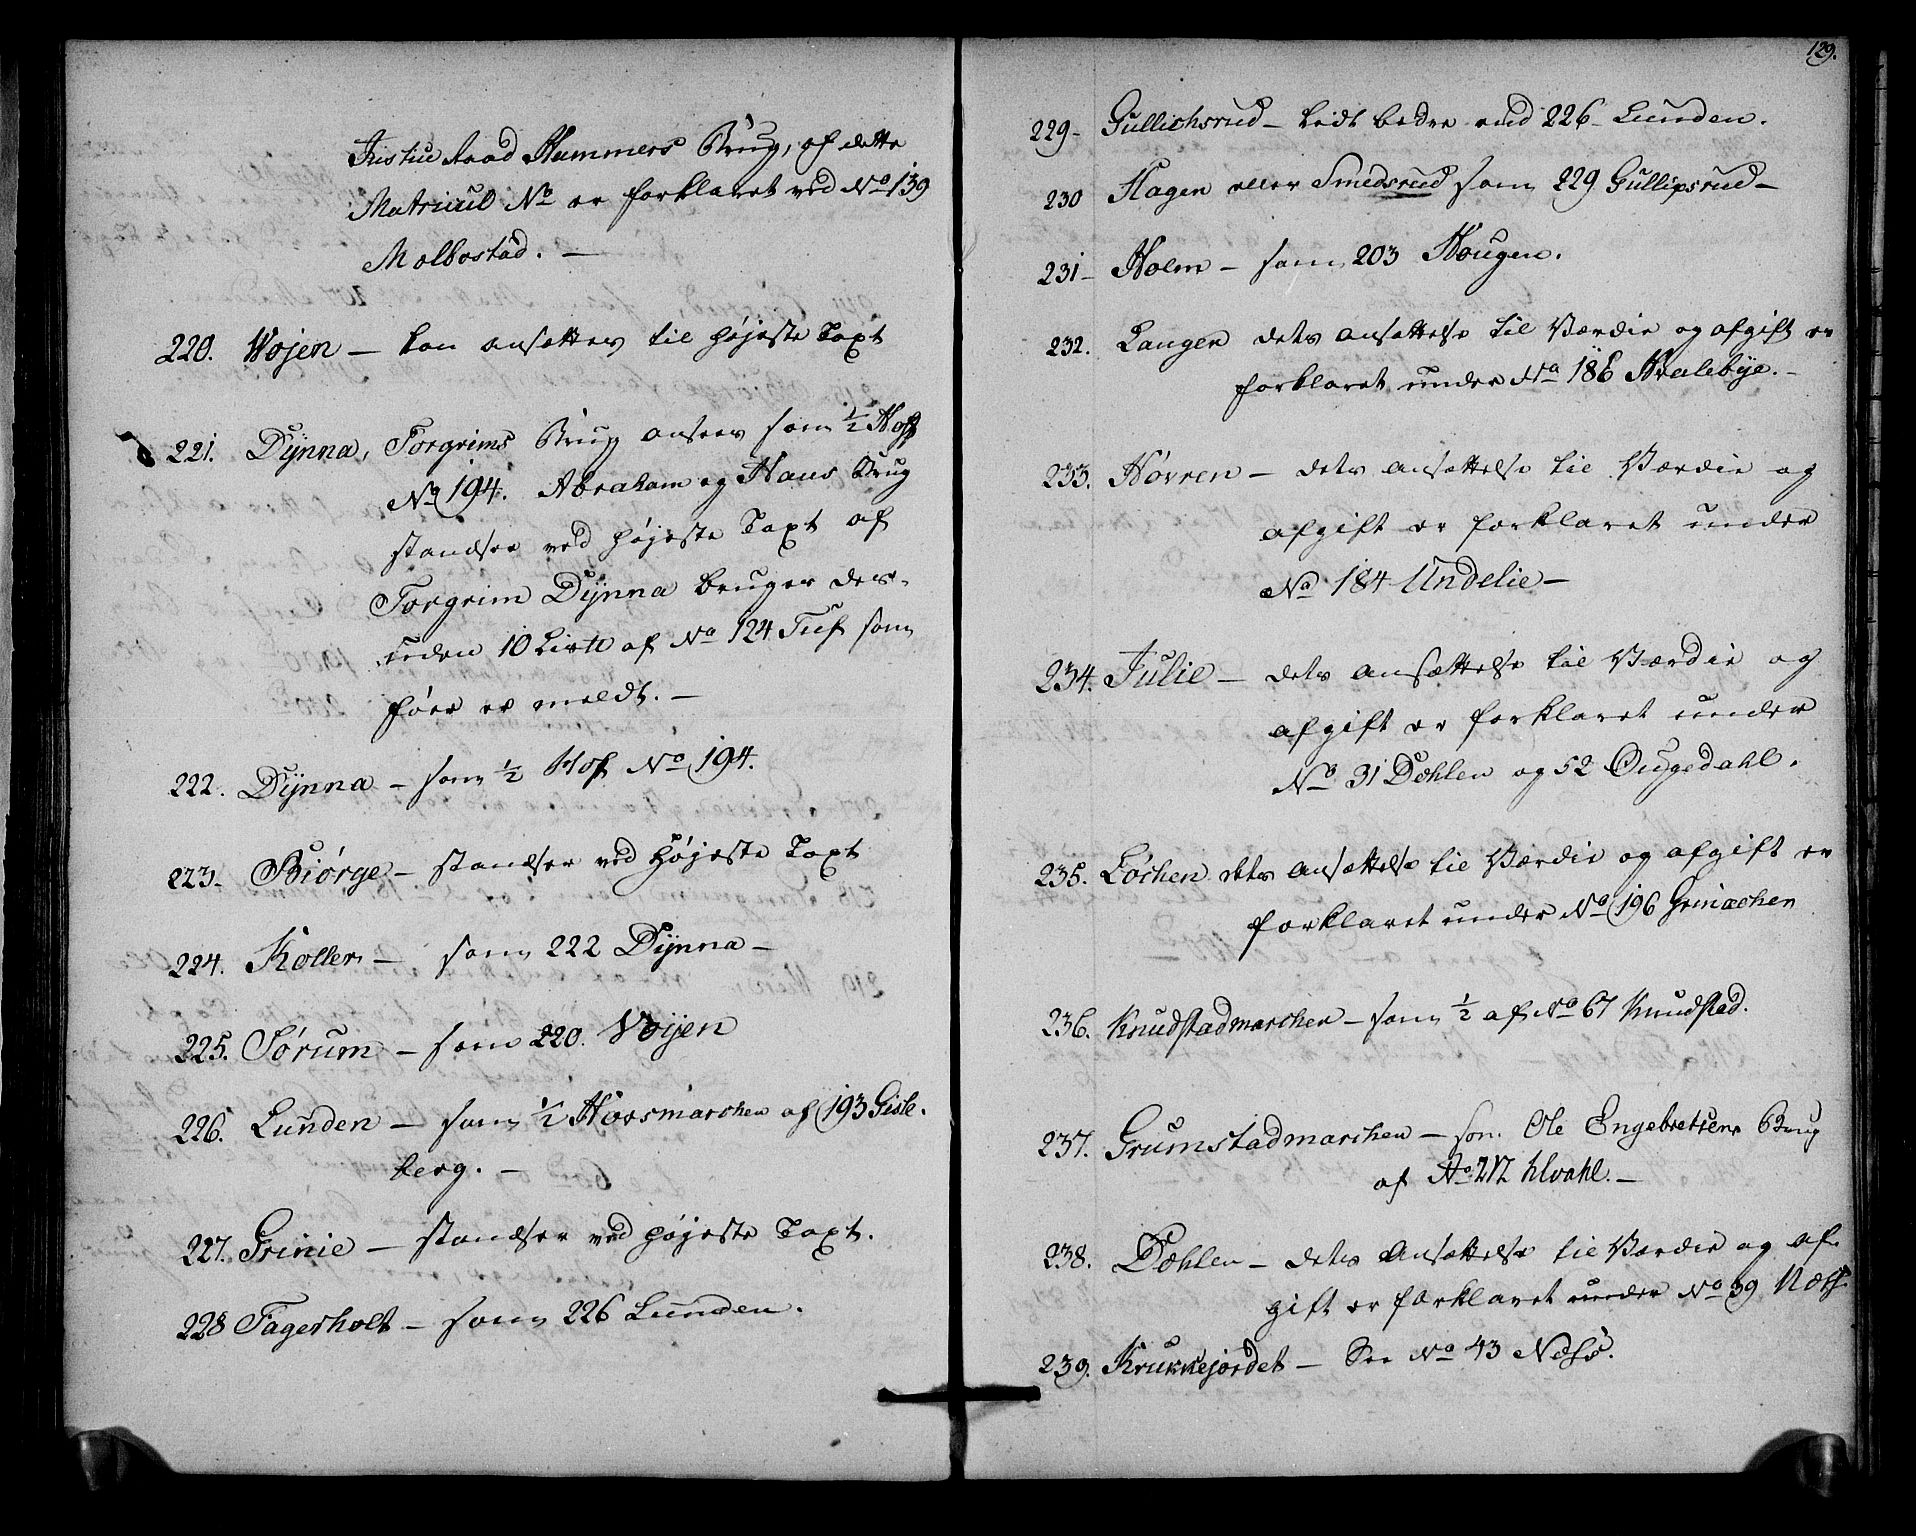 Justice Raad Hammers Brug, af dette
Matricul No er forklaret ved No 139
Molbostad. —
220. Wojen — kan ansættes til højeste Taxt
221. Dÿnna, Torgrims Brug ansees som ½ Hoff
No 194. Abraham og Hans Brug
standser ved højeste Taxt af
Torgrim Dÿnna bruger des-
uden 10 Lispd af No 124 Tuf som
föer er meldt. —
222. Dÿnna — som ½ Hof No 194.
223. Biørge — standser ved højeste Taxt
224. Koller — som 222 Dÿnna —
225. Sörum — som 220. Voijen
226. Lunden — som ½ Hovsmarchen af 193 Gisle-
berg. —
227. Grinie — standser ved højeste Taxt.
228 Fagerholt — som 226 Lunden.
129.
229 - Gullichsrud — lidt bedre end 226 - Lunden.
230 Hagen eller Smedsrud som 229 Gullichsrud —
231 — Holm — som 203 Hougen.
232. Langen dets ansættelse til Værdie og afgift er
forklaret under No 186 Hvalebÿe. —
233. Hövren — dets ansættelse til Værdie og
afgift er forklaret under
No 184 Undelie —
234. Julie — dets ansættelse til Værdie og
afgift er forklaret under
No 31 Dæhlen og 52 Ougedahl.
235. Löchen dets ansættelse til Værdie og afgift er
forklaret under No 196 Grinachen
236. Knudstadmarchen — som ½ af No 67 Knudstad.
237. Grumstadmarchen — som Ole Engebretsens Brug
af No 212 Ulvahl. —
238. Dæhlen — dets ansættelse til Værdie og af-
gift er forklaret under No 39 Næss
239. Krukkejordet — See No 43 Næss.